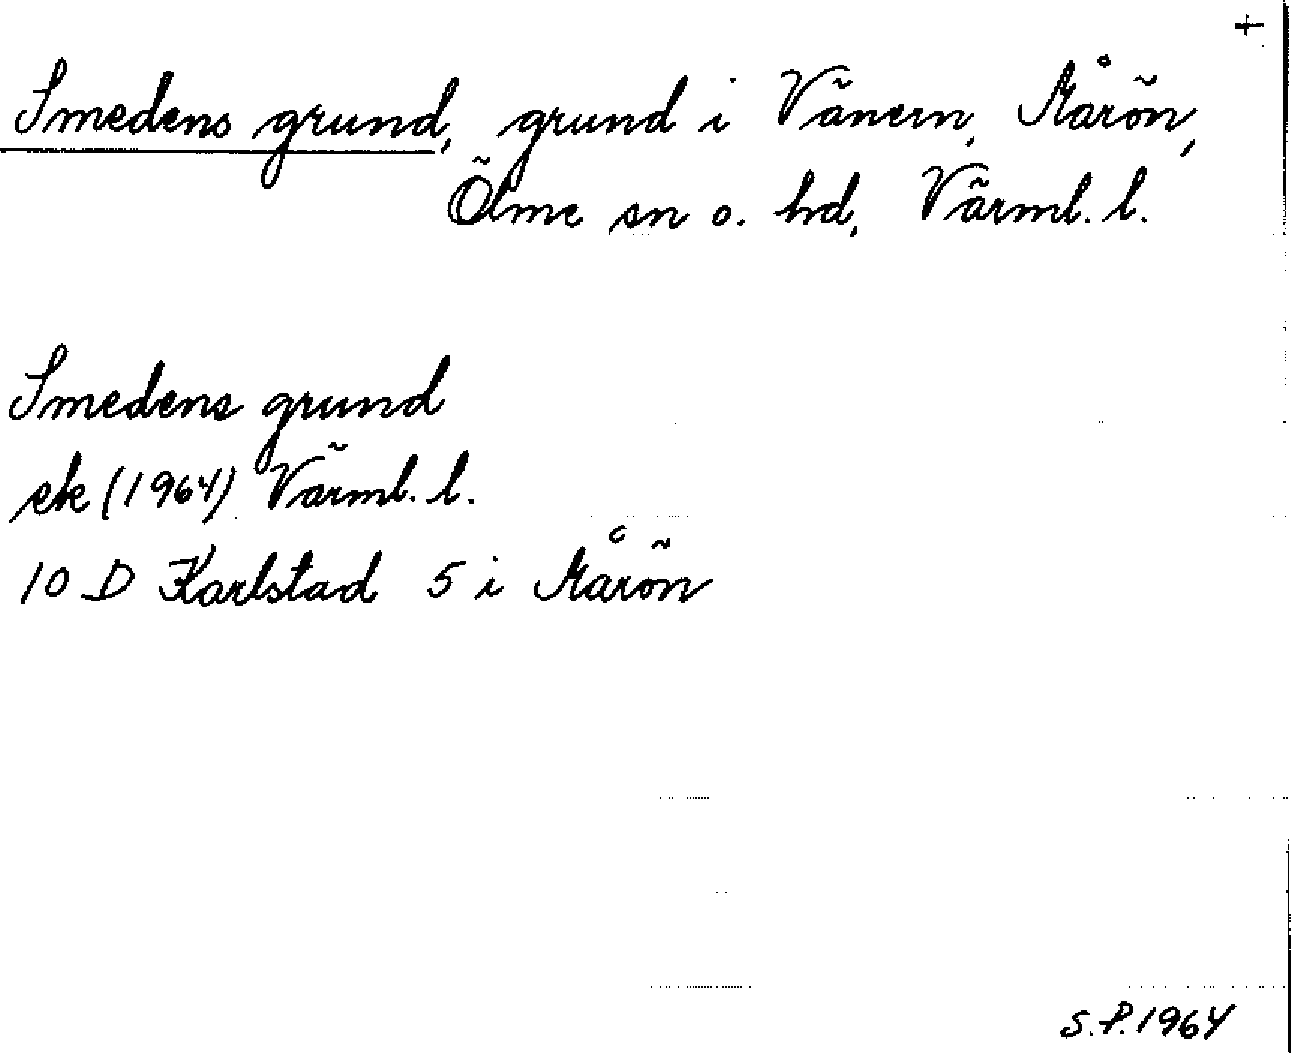 +
Smedens grund, grund i Vänern, Åårön,
Ölme sn o. hd, Värml. l.
Smedens grund
ek (1964) Värml. l.
10 D Karlstad 5 i Årön
S.P. 1964